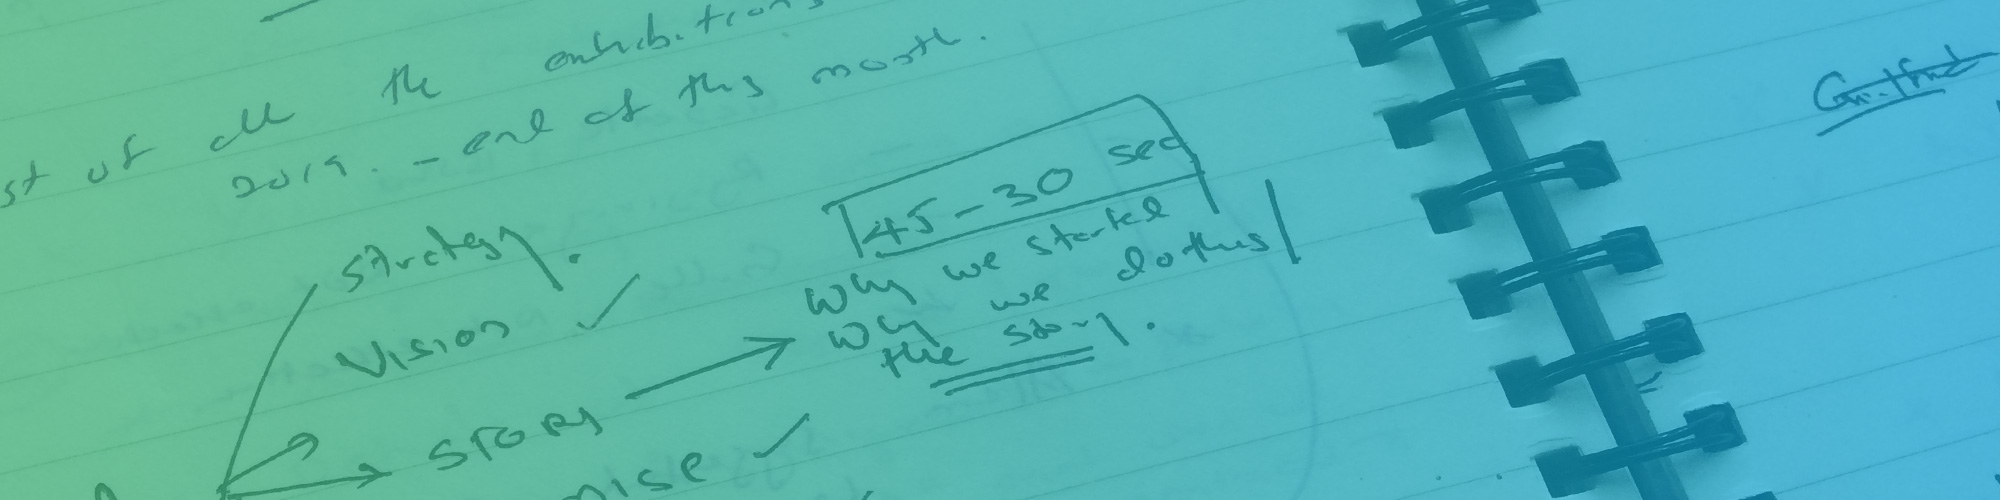 st of all the contributions
2019. - end of this month.
Strategy.
Vision ✓
STORY →
45-30 sec
Why we started
Why we do this
the story.